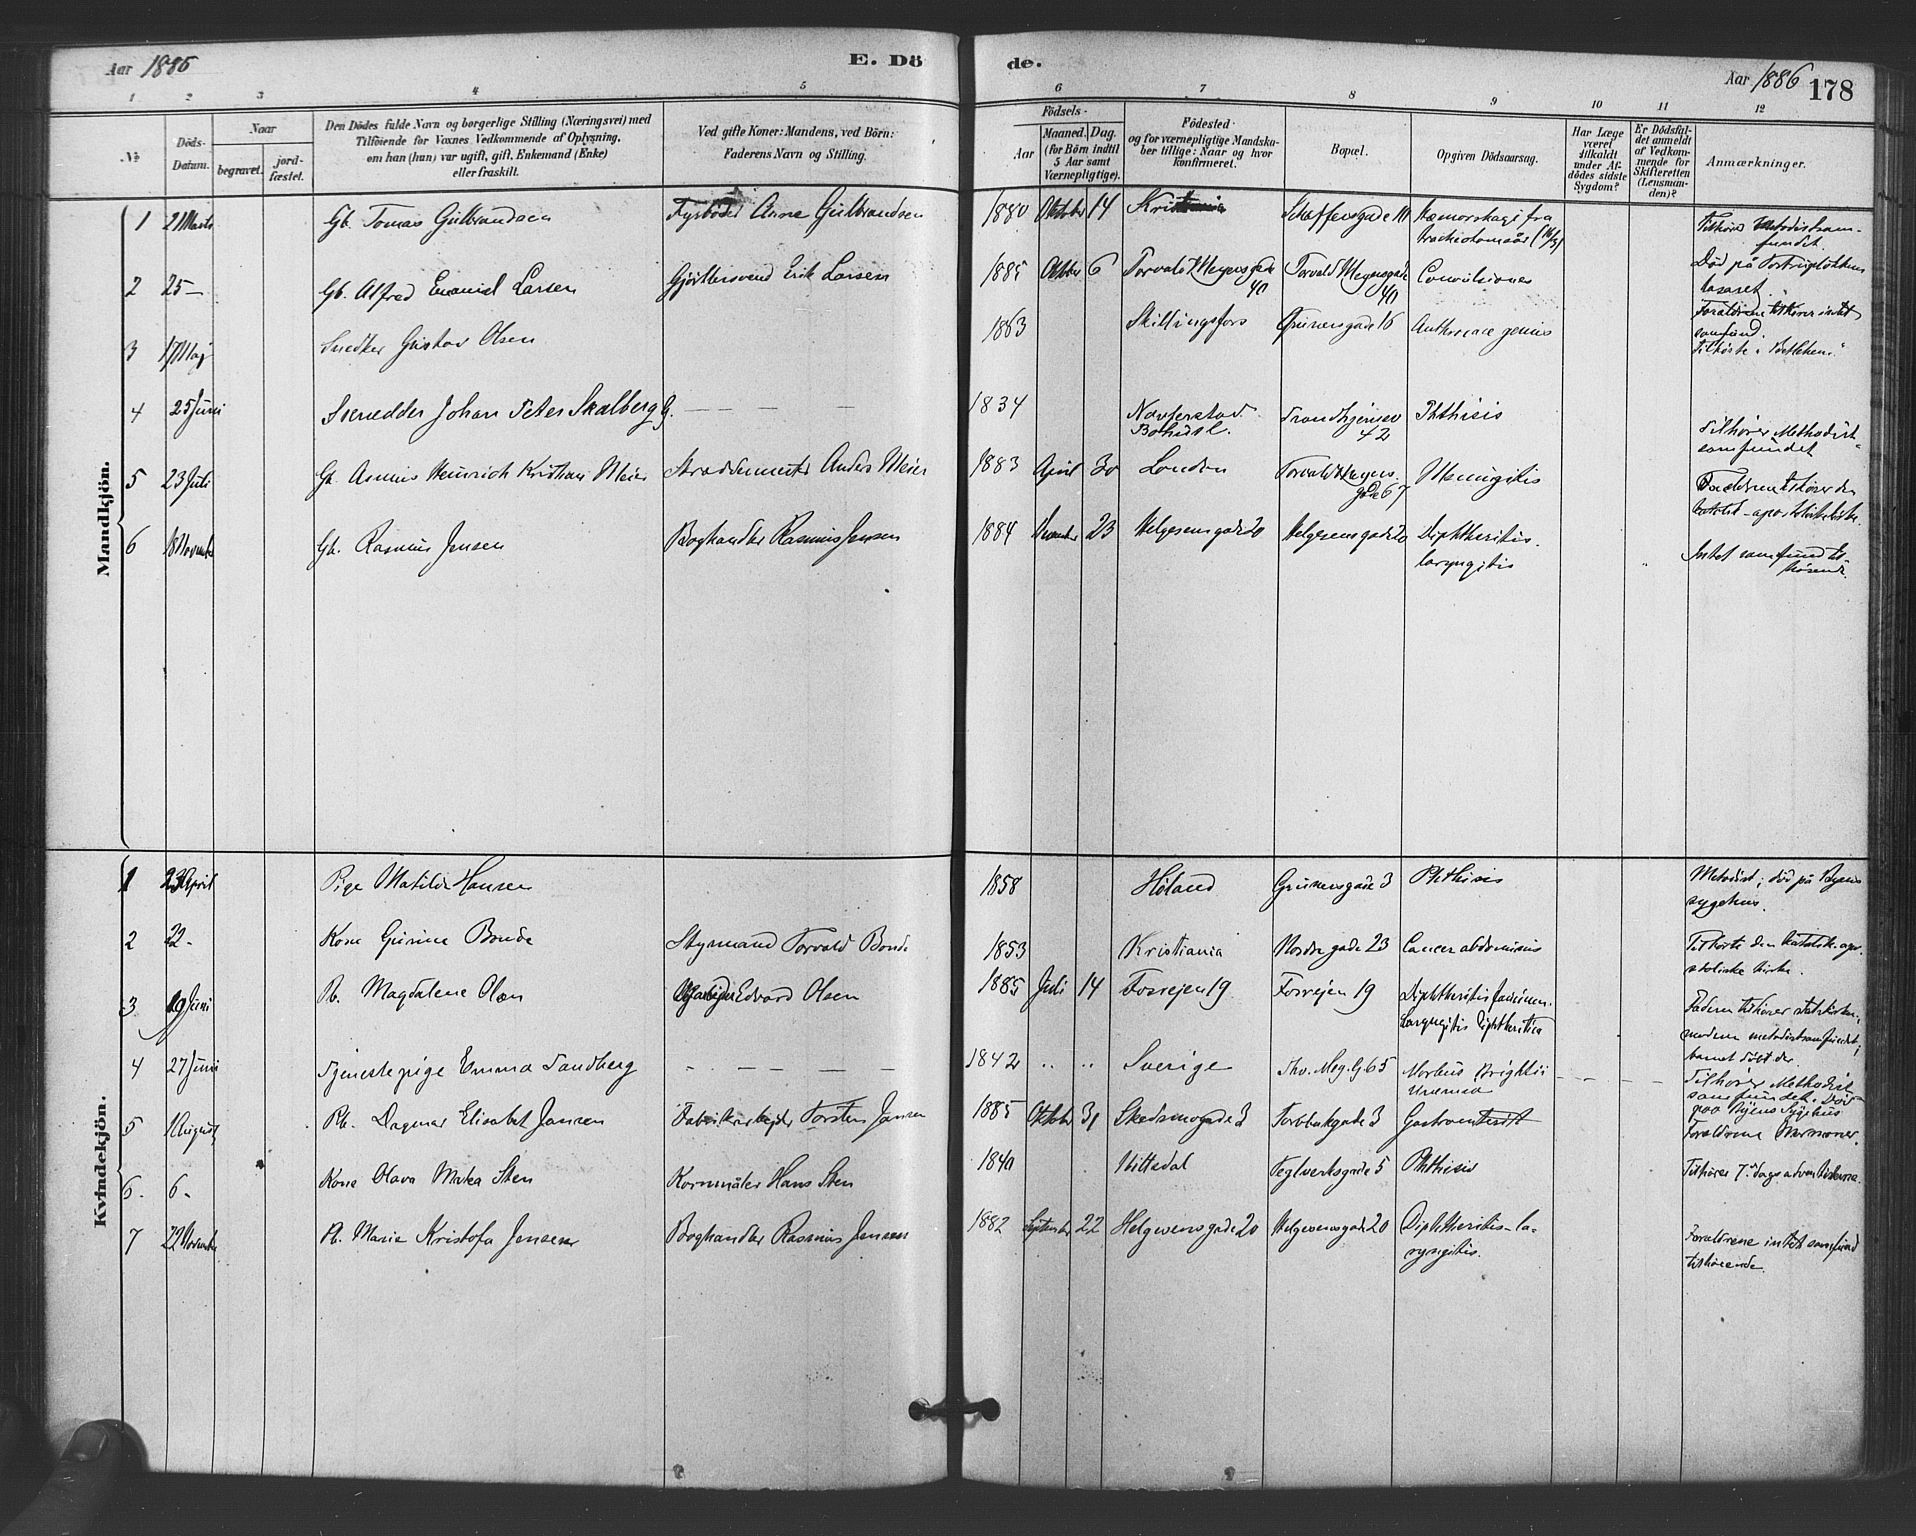 Aar 1886
E. Dö
de.
Aar 1886
178
1 2 3 4 5
6 7 8 9 10 11 12
№
Döds-Datum.
Naar
begravet.
jord-fæstet.
Den Dödes fulde Navn og borgerlige Stilling (Næringsvei) med
Tilföiende for Voxnes Vedkommende af Oplysning,
om han (hun) var ugift, gift, Enkemand (Enke)
eller fraskilt.
Ved gifte Koner: Mandens, ved Börn:
Faderens Navn og Stilling.
Födsels-
Aar
Maaned. Dag.
(for Börn indtil
5 Aar samt
Værnepligtige).
Födested
og for værnepligtige Mandska-
ber tillige: Naar og hvor
konfirmeret.
Bopæl.
Opgiven Dödsaarsag.
Har Læge
været
tilkaldt
under Af-
dödes sidste
Sygdom?
Er Dödsfal-
det anmeldt
af Vedkom-
mende for
Skifteretten
(Lensman-
den)?
Anmærkninger.
Mandkjön.
1 21 Marts Gb. Tomas Gulbrandsen Anne Gulbrandsen 1880 Oktober 14 Kristiania Schæffersgade Hæmorrhagi fra
Tilhører Metodistsam-
fundet.
2 25 — Gb. Alfred Emanuel Larsen Gjørtlersvend Erik Larsen 1885 Oktbr 6 Torvald Meyersgade
40 Torvald Meyersgade
40 Convulsiones
Død på
lasaret.
3 17 Maj Snedker Gustav Olsen 1863 Skillingsfors Grünersgade 16
Forældrene tilhører intet
samfund.
Tilhørte "Betlehem."
4 25 Juni Johan Peter Skalberg G. — — — — 1834
Bohusl. Trondhjemsv
42 Phthisis
Tilhører Methodist-
samfundet
5 23 Juli Gb. Asmus Heinrich Kristian Meier Skræddermester Anders Meier 1883 April 30 London Torvald Meyers-
gade 67 Meningitis
Forældrene tilhører den
katolsk-apostoliske kirke.
6 18 Novembr Gb. Rasmus Jensen Boghandler Rasmus Jensen 1884 23 Helgesensgade 20 Helgesensgade 20 Diphtheritis.
laryngitis
Intet samfund til-
hørende.
Kvindekjön.
1 23 April Pige Matilde Hansen 1858 Høland Grünersgade 3 Phthisis
Metodist; død på Byens
sygehus.
2 22 - Kone Gurine Bonde Styrmand Torvald Bonde 1853 Kristiania Nordre gade 23 Cancer abdominis
Tilhørte den katolsk-apo-
stoliske kirke.
3 19 Juni Pb. Magdalene Olsen Edvard Olsen 1885 Juli 14 Fossvejen 19 Fossvejen 19 Diphtheritis faucium.
Laryngitis diphtheritica
Faderen tilhører statskirken,
moderen metodistsamfundet;
barnet døbt der.
4 27 Juni Tjenestepige Emma Sandberg - — — — — 1842 " " Sverige Thv. Mey. G. 65 Morbus Brightii
Uræmia
Tilhører Methodist
samfundet. Død
paa Byens Sygehus
5 1 August Pb. Dagmar Elisabet Jansen Fabrikarbejder Torsten Jansen 1885 Oktober 31 Skedsmogade 3 Torbbakgade 3
Forældrene Mormoner.
6. 6 - Kone Olava Sten Kornmåler Hans Sten 1840 Nittedal Teglverksgade 5 Phthisis
Tilhører 7. dags adventisterne.
7 22 Novembr Pb. Marie Kristofa Jensen Boghandler Rasmus Jensen 1882 September 22 Helgesensgade 20 Helgesensgade 20 Diphtheritis-la-
ryngitis.
Forældrene intet samfund
tilhørende.